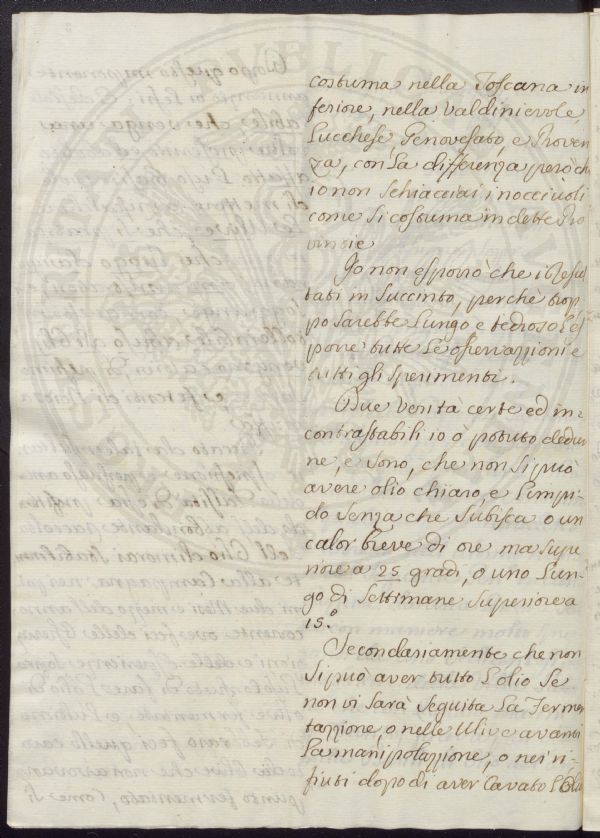 costuma nella Toscana in
feriore, nella valdinievole
Lucchese, Genovesato, e Proven
za, con La differenza però ch
io non Schiacciai i nocciuoli
come Si costuma in dette Pro
vincie
Io non esporrò che i Resul
tati in Succinto, perchè trop
po Sarebbe Lungo e tedioso L'es
porre tutte Le osservazzioni e
tutti gli Sperimenti.
Due verità certe ed in
contrastabili io ò potuto dedur
ne, e sono, che non Si può
avere olio chiaro, e Limpi
do Senza che Subisca o un
calor breve di ore ma Supe
riore a 25 gradi, o uno Lun
go di Settimane Superiore a
15.°
Secondariamente che non
Si può aver tutto L'olio Se
non vi Sarà Seguita La Fermen
tazzione, o nelle Ulive avanti
La manipolazzione, o nei ri
fiuti dopo di aver Cavato L'Olio